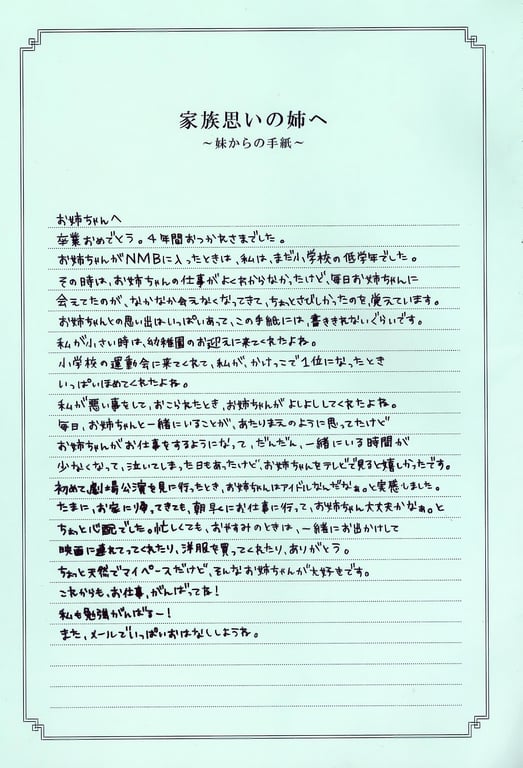 家族思いの姉へ
～妹からの手紙～
お姉ちゃんへ
卒業おめでとう。4年間おつかれさまでした。
お姉ちゃんがNMBに入ったときは、私は、まだ小学校の低学年でした。
その時は、お姉ちゃんの仕事がよくわからなかったけど、毎日お姉ちゃんに
会えてたのが、なかなか会えなくなってきて、ちょっとさびしかったのを、覚えています。
お姉ちゃんとの思い出はいっぱいあって、この手紙には、書ききれないぐらいです。
私が小さい時は、幼稚園のお迎えに来てくれたよね。
小学校の運動会に来てくれて、私が、かけっこで1位になったとき
いっぱいほめてくれたよね。
私が悪い事をして、おこられたとき、お姉ちゃんがよしよししてくれたよね。
毎日、お姉ちゃんと一緒にいることが、あたりまえのように思ってたけど
お姉ちゃんがお仕事をするようになって、だんだん、一緒にいる時間が
少なくなって、泣いてしまった日もあったけど、お姉ちゃんをテレビで見ると嬉しかったです。
初めて、劇場公演を見に行ったとき、お姉ちゃんはアイドルなんだなぁ。と実感しました。
たまに、お家に帰ってきても、朝早くにお仕事に行って、お姉ちゃん大丈夫かなぁ。と
ちょっと心配でした。忙しくても、おやすみのときは、一緒にお出かけして
映画に連れてってくれたり、洋服を買ってくれたり、ありがとう。
ちょっと天然でマイペースだけど、そんなお姉ちゃんが大好きです。
これからも、お仕事、がんばってな!
私も勉強がんばるー!
また、メールでいっぱいおはなししようね。